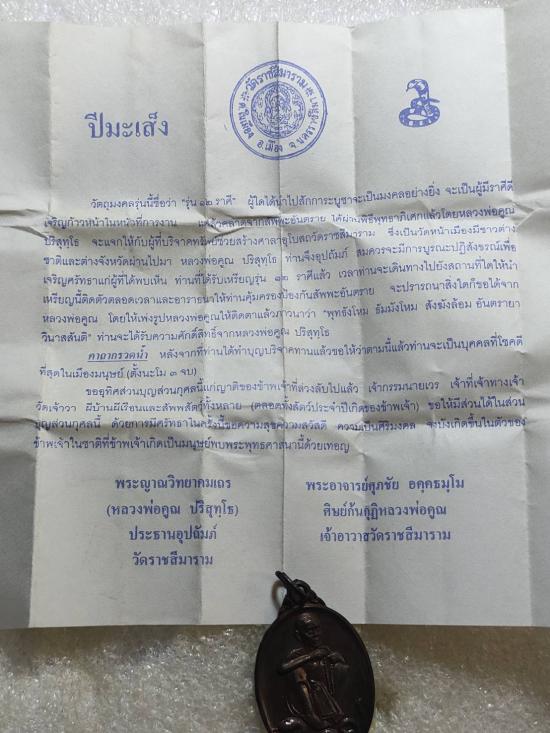 วัดราชสีมาราม
ต.ในเมือง อ.เมือง จ.นครราชสีมา
ปีมะเส็ง
วัตถุมงคลรุ่นนี้ชื่อว่า "รุ่น ๑๒ ราศี" ผู้ใดได้นำไปสักการะบูชาจะเป็นมงคลอย่างยิ่ง จะเป็นผู้มีราศีดี
เจริญก้าวหน้าในหน้าที่การงาน แคล้วคลาดจากสัพพะอันตราย ได้ผ่านพิธีพุทธาภิเศกแล้วโดยหลวงพ่อคูณ
ปริสุทฺโธ จะแจกให้กับผู้ที่บริจาคทรัพย์ช่วยสร้างศาลาอุโบสถวัดราชสีมาราม ซึ่งเป็นวัดหน้าเมืองมีชาวต่าง
ชาติและต่างจังหวัดผ่านไปมา หลวงพ่อคูณ ปริสุทฺโธ ท่านจึงอุปถัมภ์ สมควรจะมีการบูรณะปฏิสังขรณ์เพื่อ
เจริญศรัทธาแก่ผู้ที่ได้พบเห็น ท่านที่ได้รับเหรียญรุ่น ๑๒ ราศีแล้ว เวลาท่านจะเดินทางไปยังสถานที่ใดให้นำ
เหรียญนี้ติดตัวตลอดเวลาและอาราธนาให้ท่านคุ้มครองป้องกันสัพพะอันตราย จะปรารถนาสิ่งใดก็ขอได้จาก
หลวงพ่อคูณ โดยให้เพ่งรูปหลวงพ่อคูณให้ติดตาแล้วภาวนาว่า "พุทธังโหม ธัมมังโหม สังฆังล้อม อันตรายา
วินาสสันติ" ท่านจะได้รับความศักดิ์สิทธิ์จากหลวงพ่อคูณ ปริสุทฺโธ
คาถากรวดน้ำ หลังจากที่ท่านได้ทำบุญบริจาคทานแล้วขอให้ว่าตามนี้แล้วท่านจะเป็นบุคคลที่โชคดี
ที่สุดในเมืองมนุษย์ (ตั้งนะโม ๓ จบ)
ขออุทิศส่วนบุญส่วนกุศลนี้แก่ญาติของข้าพเจ้าที่ล่วงลับไปแล้ว เจ้ากรรมนายเวร เจ้าที่เจ้าทางเจ้า
วัดเจ้าวา ผีบ้านผีเรือนและสัพพสัตว์ทั้งหลาย (ตลอดทั้งสัตว์ประจำปีเกิดของข้าพเจ้า) ขอให้มีส่วนได้ในส่วน
บุญส่วนกุศลนี้ ด้วยการมีศรัทธาในครั้งนี้ขอความสุขความสวัสดี ความเป็นศิริมงคล จงบังเกิดขึ้นในตัวของ
ข้าพเจ้าในชาติที่ข้าพเจ้าเกิดเป็นมนุษย์พบพระพุทธศาสนานี้ด้วยเทอญ
พระญาณวิทยาคมเถร
(หลวงพ่อคูณ ปริสุทฺโธ)
ประธานอุปถัมภ์
วัดราชสีมาราม
พระอาจารย์ศุภชัย อคฺคธมฺโม
ศิษย์ก้นกุฏิหลวงพ่อคูณ
เจ้าอาวาสวัดราชสีมาราม